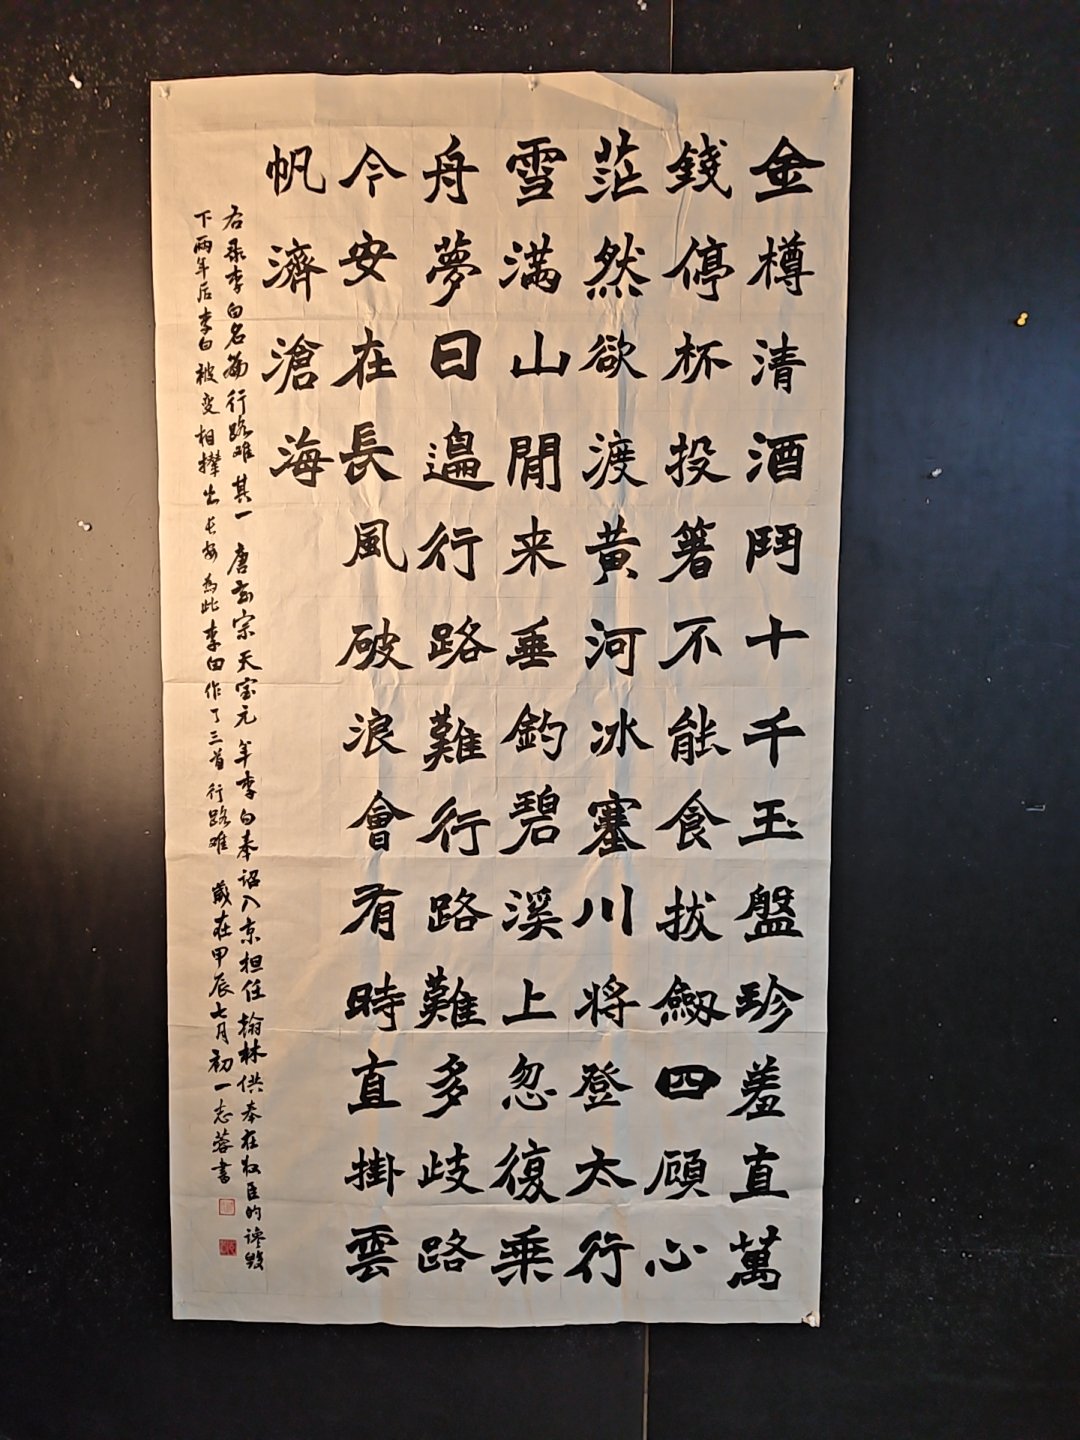 金樽清酒鬥十千玉盤珍羞直萬
錢停杯投箸不能食拔劔四顧心
茫然欲渡黃河冰塞川將登太行
雪满山閒来垂釣碧溪上忽復乘
舟夢日邊行路難行路難多歧路
今安在長風破浪會有時直掛雲
帆濟滄海
右录李白名篇行路难其一 唐玄宗天宝元年李白奉诏入京担任翰林供奉在权臣的谗毁
下两年后李白被变相撵出长安为此李白作了三首行路难 岁在甲辰七月初一志蓉書